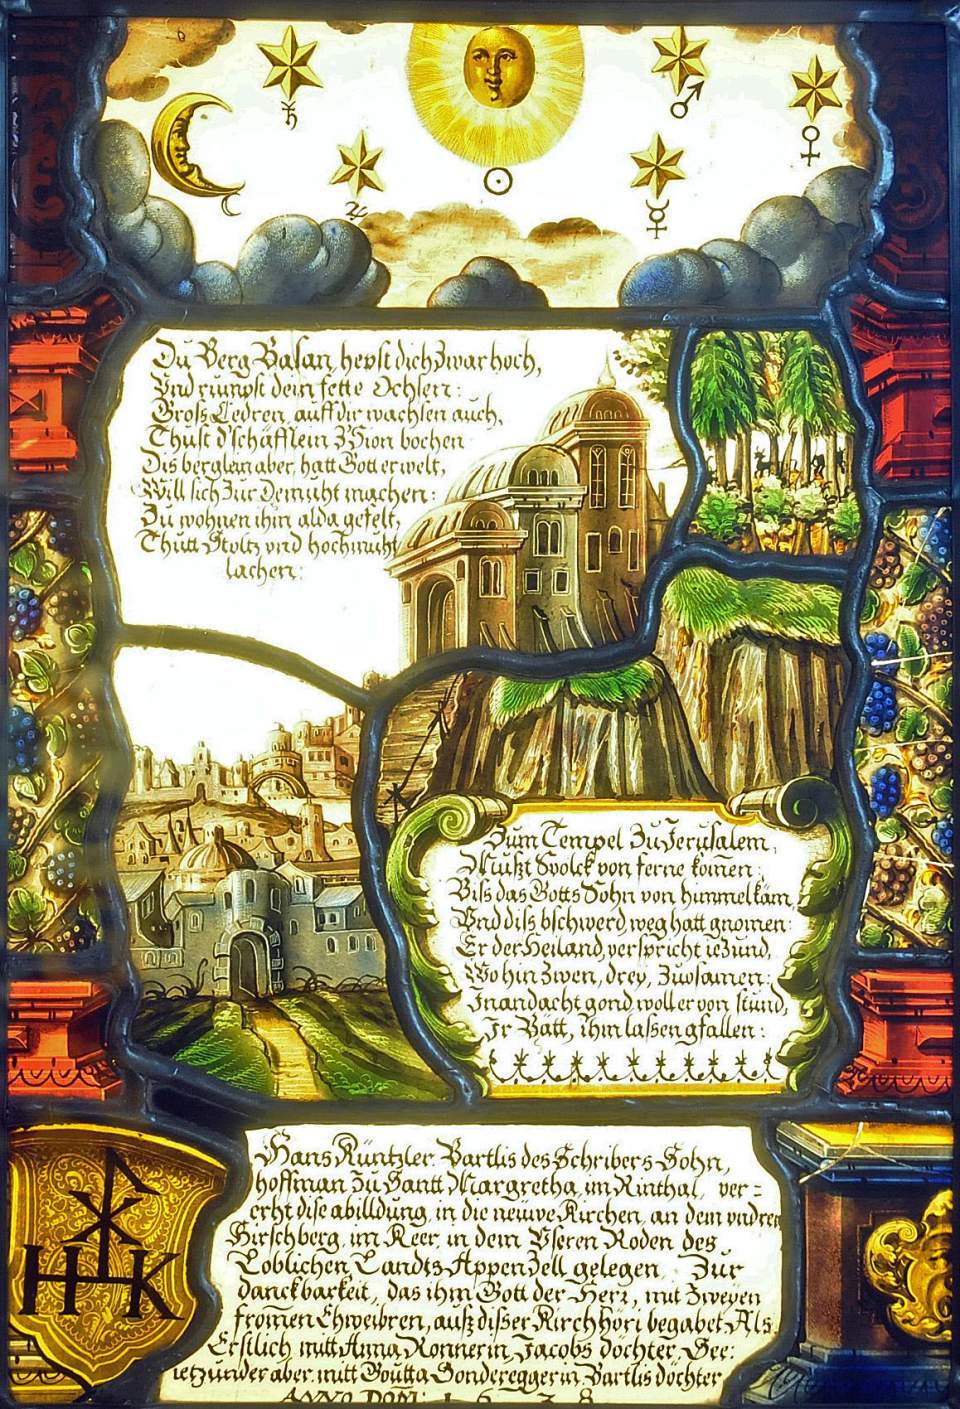 ♄ ♃ ☉ ♂ ☿ ♀ ☾
Du Berg Basan hepst dich Zwar hoch,
Vnd riumpst dein fette Ochsen:
Grosz Cedren, auff dir wachsen auch,
Thust d'schäfflein Zion bochen
Dis berglein aber, hatt Gott erwelt,
Will sich Zur Demuht machen:
Zu wohnen ihm alda gefelt,
Thutt Stoltz vnd hochmuht
lachen:
Zum Tempel Zu Jerusalem,
Muszt Svolck von ferne kom̄en:
Bisz das Gotts Sohn von himmel kam,
Vnd disz bschwerd, weg hatt gnomen:
Er der Heiland, verspricht iezund,
Wo hin Zwen, drey, Zuosamen:
In andacht gond woll er von stund,
Ir Bätt, ihm lassen gfallen:
Hans Küntzler, Bartlis des Schribers Sohn,
hoffman Zu Santt Margretha, im Rinthal, ver-
erht dise abilldung, in die neüwe Kirchen, an dem vndren
Hirschberg, im Keer, in dem Vseren Roden des
Loblichen Landts Appenzell gelegen, Zur
danckbarkeit, das ihm Gott der Herr, mit Zweyen
from̄en Ehweibren, ausz disser Kirchhöri begabet, Als
Erstlich mitt Anna Nonnerin, Jacobs dochter See:
ietzunder aber, mitt Goutta Sondereggerin, Bartlis dochter
ANNO DOM: 1 6 3 8
HK